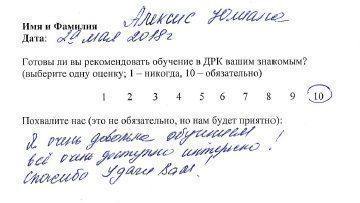 Имя и Фамилия Алексис Юлиана
Дата: 20 мая 2018г
Готовы ли вы рекомендовать обучение в ДРК вашим знакомым?
(выберите одну оценку; 1 – никогда, 10 – обязательно)
1 2 3 4 5 6 7 8 9 10
Похвалите нас (это не обязательно, но нам будет приятно):
Я очень довольна обучением
всё очень доступно интересно!
Спасибо Удачи Вам!